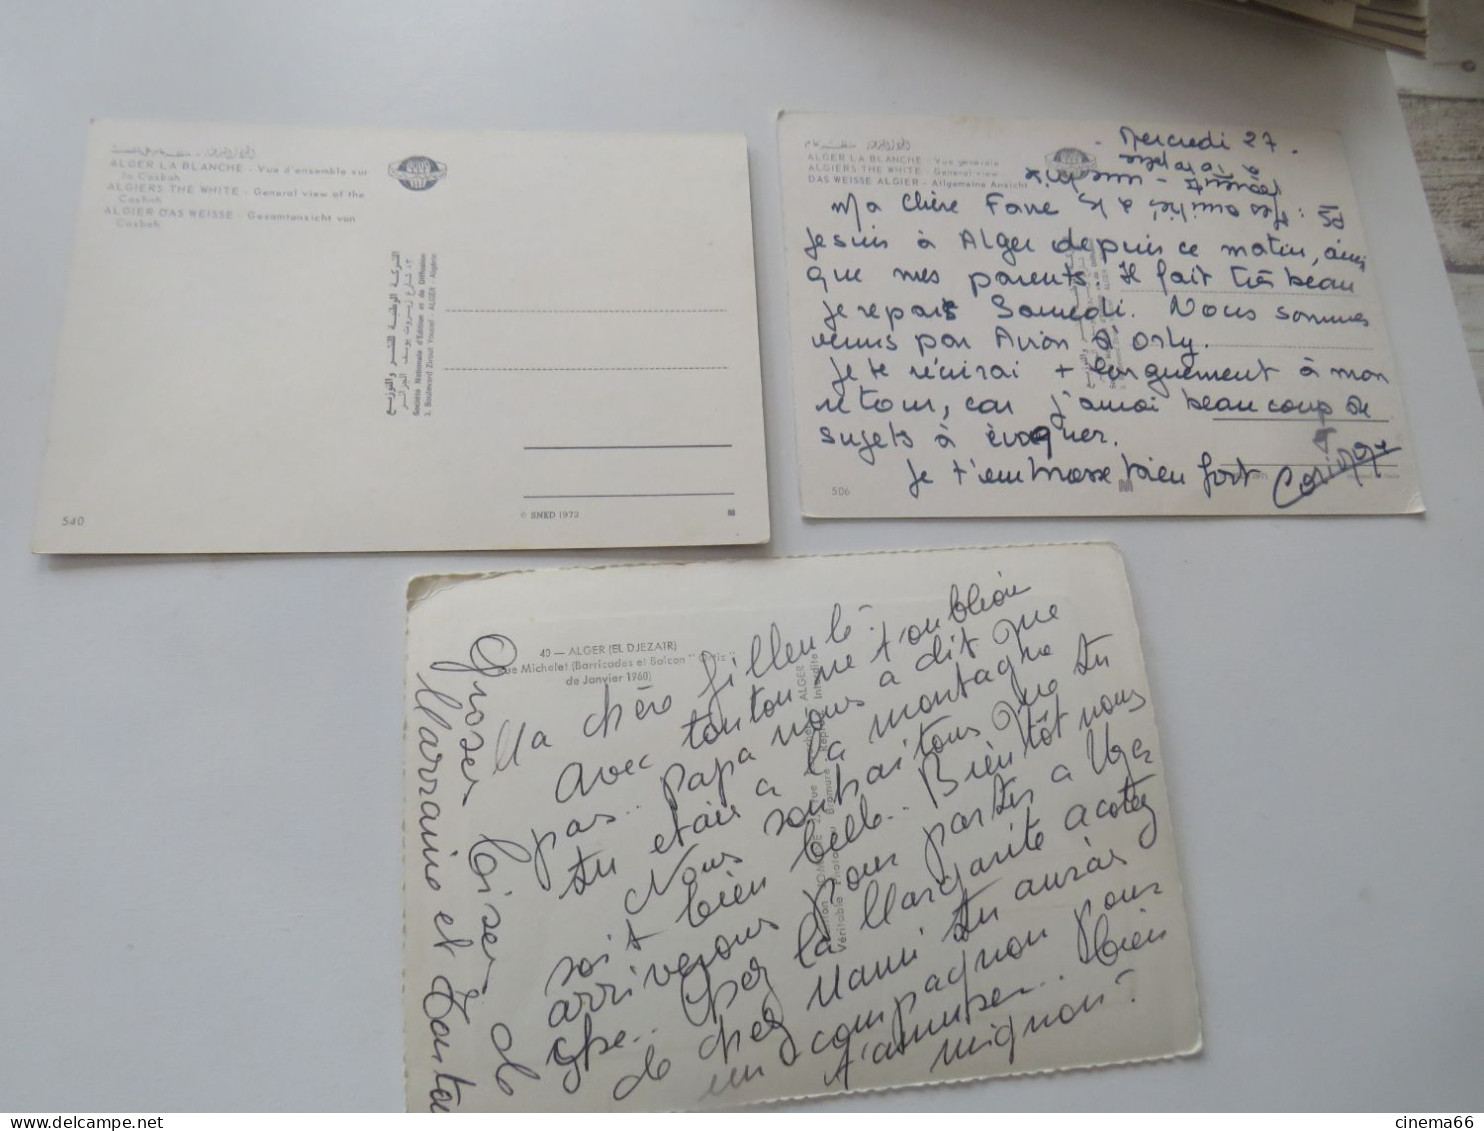 ALGER LA BLANCHE - Vue d'ensemble sur
la Casbah
ALGIERS THE WHITE - General view of the
Casbah
ALGIER DAS WEISSE - Gesamtansicht von
Casbah
الشركة الوطنية للنشر والتوزيع
Société Nationale d'Edition et de Diffusion
3, Boulevard Zirout Youcef - ALGER - Algérie
540
© SNED 1973
ALGER LA BLANCHE - Vue générale
ALGIERS THE WHITE - General view
DAS WEISSE ALGIER - Allgemeine Ansicht
Mercredi 27.
PS : Mes amitiés à
Ma chère Fane
Je suis à Alger depuis ce matin, ainsi
que mes parents. Il fait très beau
je repars Samedi. Nous sommes
venus par Avion à Orly.
Je te récrirai + longuement à mon
retour, car j'aurai beaucoup de
sujets à évoquer.
Je t'embrasse bien fort
506
40 — ALGER (EL DJEZAIR)
Rue Michelet (Barricades et Balcon " Ortiz "
de Janvier 1960)
ALGER
Interdite
Véritable Photo au Bromure
Ma chère filleule.
avec tonton ne t'oublions
pas.. papa nous a dit que
tu étais a la montagne
Nous souhaitons que tu
soit bien belle.. Bientôt nous
arriverons pour partir a
chez la Margarite a coté
de chez Mami tu auras
un compagnon pour
t'amuser.. bien
mignon?
Groses bises de
Marraine et Tonton
cinema66